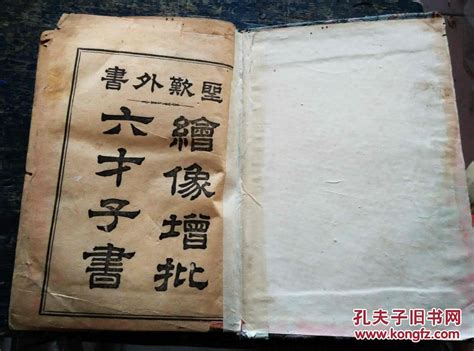 聖歎外書
繪像增批
六才子書
孔夫子旧书网
kongfz.com